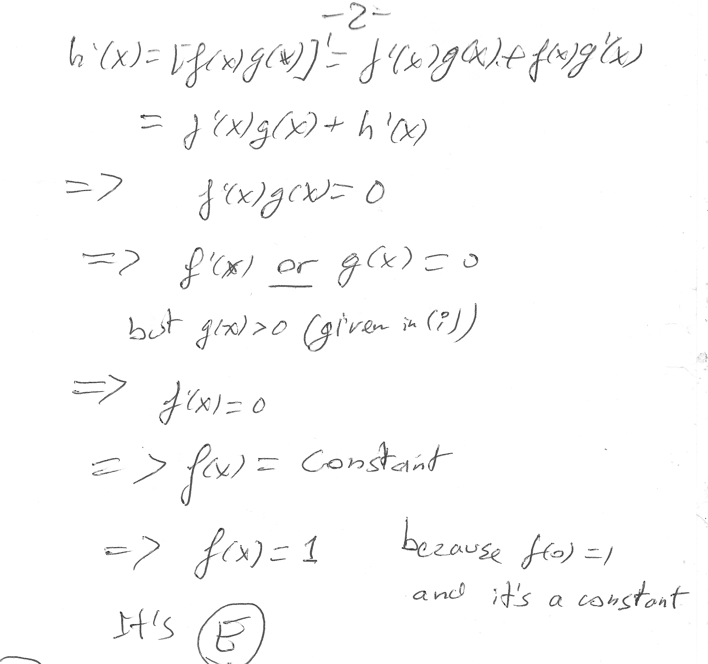 -2-
h'(x) = [f(x)g(x)]' = f'(x)g(x) + f(x)g'(x)
= f'(x)g(x) + h'(x)
=> f'(x)g(x) = 0
=> f'(x) or g(x) = 0
but g(x) > 0 (given in (i))
=> f'(x) = 0
=> f(x) = Constant
=> f(x) = 1 because f(0) = 1
and it's a constant
It's E